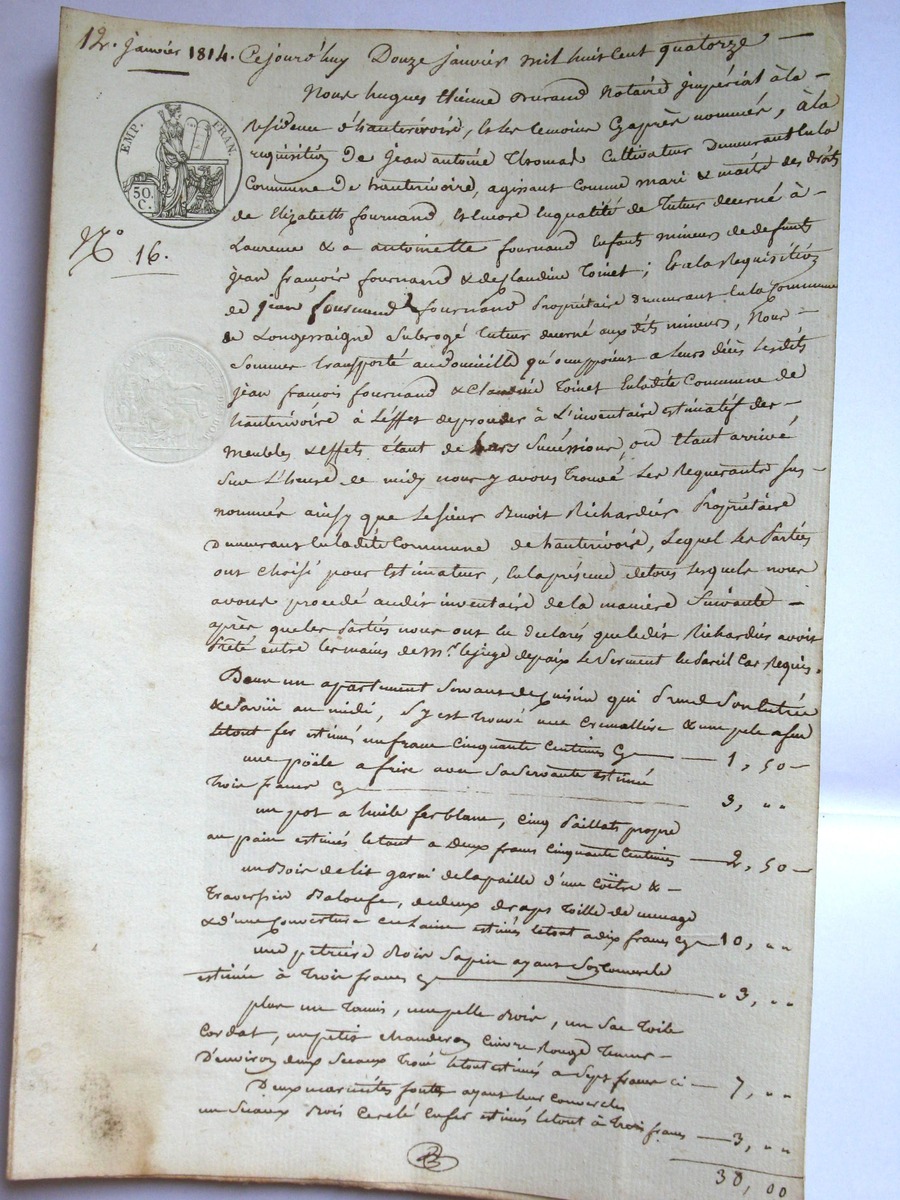 12. janvier 1814. Cejourd'huy Douze janvier mil huit cent quatorze
Nous hugues Durand Notaire Imperial à la
residence d'hauterivoire, & les temoins cy après nommés, à la
requisition De jean antoine Thomas Cultivateur Demeurant en la
Commune De hauterivoire, agissant comme mari & maitre des droits
de Elizabeth fournand, & encore en qualité de Tuteur decerné à
Laurence & a antoinette fournand Enfants mineurs de defunts
jean françois fournand & de Claudine Toinet; & a la Requisition
de jean fournand Propriétaire Demeurant en la Commune
de Longessaigne Subrogé tuteur decerné aux dits mineurs, Nous
Sommes transporté au Domicille qu'occuppoient a leurs décès lesdits
jean françois fournand & Claudine Toinet en ladite Commune de
hauterivoire à L'effet de proceder à L'inventaire estimatif des
meubles & effets étant de leurs Successions, où étant arrivé
Sur L'heure de midy nous y avons Trouvé Les Requerants sus
nommés ainsy que le sieur Benoit Richardier Propriétaire
Demeurant en ladite Commune de hauterivoire, Lequel Les Parties
ont choisi pour Estimateur, en la présence de tous lesquels nous
avons procedé audit inventaire de la manière Suivante
après que les Parties nous ont declarés que ledit Richardier avoit
Prêté entre les mains de Mr. le juge de paix le Serment en Pareil Cas Requis.
EMP. FRAN.
50. C.
No
16.
Dans un apartement Servant de Cuisine qui Prend Son Entrée
& Savüe au midi, S'y est trouvé une Cremallière & une pele a feu
le tout fer estimés un franc Cinquante Centimes cy 1, 50
une pöële a frire avec Sa Servante estimée
Trois francs cy 3, " "
un pot a huile fer blanc, Cinq Paillats propre
au pain estimés le tout a Deux francs Cinquante Centimes 2, 50
un Bois de lit garni de la paille d'une Coëtre &
Traversin Baloufe, de deux draps Toille de menage
& d'une Couverture en laine estimés le tout a dix francs cy 10, " "
une petrière Bois Sapin ayant Son Couvercle
estimée à Trois francs cy 3, " "
plus un Tamis, une pelle Bois, un Sac Toile
Cordat, un petit chauderon Cuivre Rouge Tenant
D'environ deux Seaux Troué le tout estimés a Sept francs ci 7, " "
Deux marmites fontes ayant leur Couvercles
un Seaux Bois Cerclé en fer estimés le tout à Trois francs 3, " "
30, 00